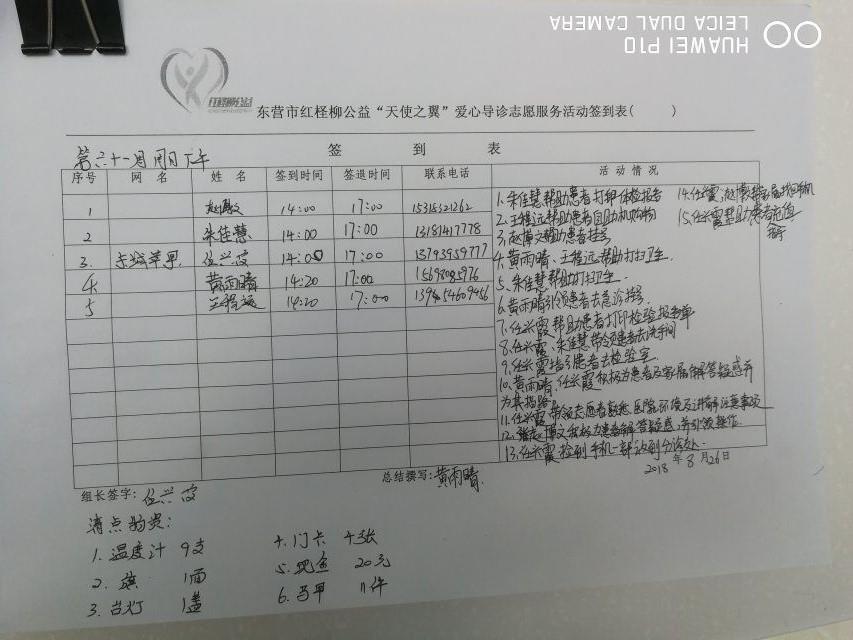 HUAWEI P10
LEICA DUAL CAMERA
红柽柳公益
东营市红柽柳公益“天使之翼”爱心导诊志愿服务活动签到表( )
第六十一周 周日下午
签 到 表
序号 网 名 姓 名 签到时间 签退时间 联系电话 活 动 情 况
1 14:00 17:00 15315321262
2 朱佳慧 14:00 17:00 13181417778
3. 任兴霞 14:00 17:00 13793959777
4 黄雨晴 14:20 17:00
5 王程远 14:20 17:00
1.朱佳慧帮助患者打印体检报告
2.王程远帮助患者自助机购物
3.赵博文帮助患者挂号
4.黄雨晴、王程远帮助打扫卫生.
5.朱佳慧帮助打扫卫生.
6.黄雨晴引领患者去急诊挂号.
7.任兴霞帮助患者打印检验报告单
8.任兴霞、朱佳慧带领患者去洗手间
9.任兴霞指引患者去检验室.
10.黄雨晴、任兴霞积极为患者及家属解答疑惑并
为其指路.
11.任兴霞带领志愿者熟悉医院环境及讲解注意事项
12.赵博文积极为患者解答疑惑,并引领操作.
13.任兴霞捡到手机一部送到分诊处.
14.任兴霞、赵博文帮家属找回手机
15.任兴霞帮助患者充值
组长签字: 任兴霞
总结撰写: 黄雨晴
2018 年 8 月 26 日
清点物资:
1.温度计 9支
2.旗 1面
3.台灯 1盏
4.门卡 4张
5.现金 20元
6.马甲 11件